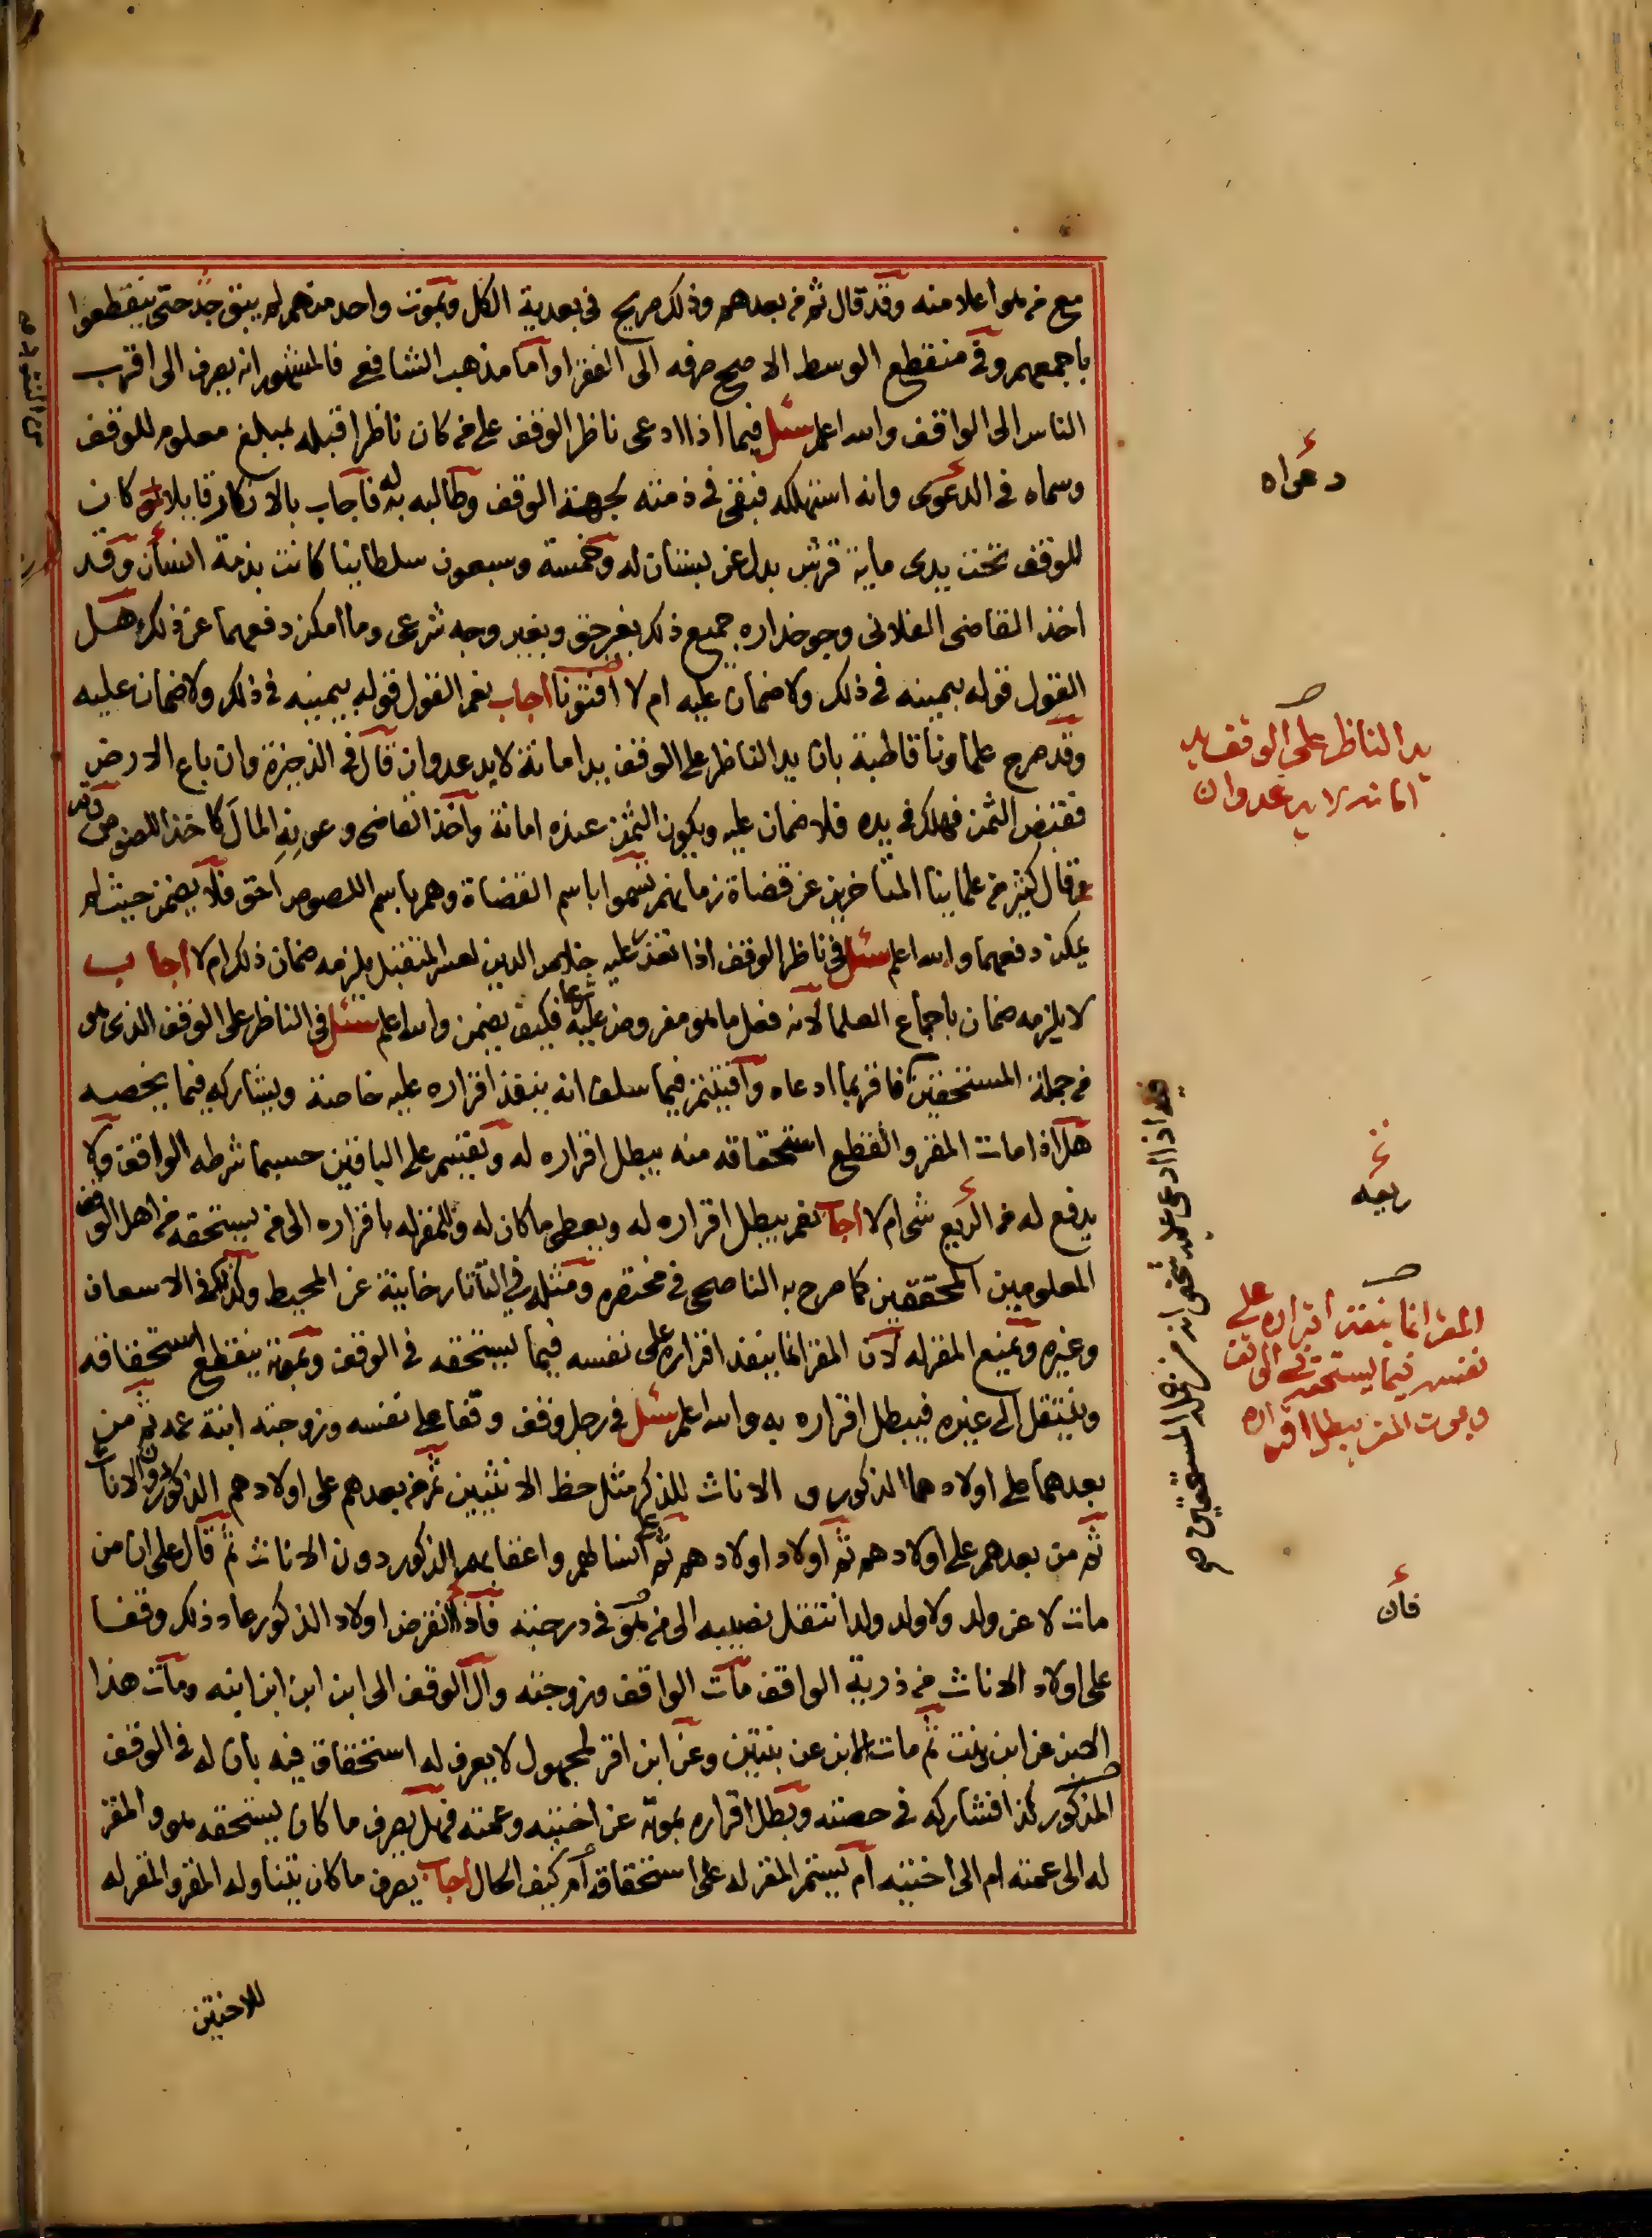 مع من هو اعلا منه وقد قال ثم من بعدهم وذلك صريح في بعدية الكل وبموت واحد منهم لم يبق جد حتى ينقطعوا
باجمعهم وفي منقطع الوسط الاصح صرفه الى الفقرا واما مذهب الشافعي فالمشهور انه يصرف الى اقرب
الناس الى الواقف والله اعلم سئل فيما اذا ادعى ناظر الوقف على من كان ناظرا قبله بمبلغ معلوم للوقف
وسماه في الدعوى وانه استهلكه فبقي في ذمته لجهة الوقف وطالبه به له فاجاب بالانكار قايلا كان
للوقف تحت يدي ماية قرش بدل عن بستان له وخمسة وسبعون سلطانيا كانت بذمة انسان وقد
اخذ القاضي الفلاني وجوخداره جميع ذلك بغير حق وبغير وجه شرعي وما امكن دفعهما عن ذلك هل
القول قوله بيمينه في ذلك ولا ضمان عليه ام لا افتونا اجاب نعم القول قوله بيمينه في ذلك ولا ضمان عليه
وقد صرح علماونا قاطبة بان يد الناظر على الوقف يد امانة لا يد عدوان قال في الذخيرة وان باع الارض
فقبض الثمن فهلك في يده فلا ضمان عليه ويكون الثمن عنده امانة واخذ القاضي وعونه المال كاخذ اللصوص وقد
قال كثير من علماينا المتاخرين عن قضاة زمانهم تسموا باسم القضاة وهم باسم اللصوص احق فلا يضمن حيث لم
يمكن دفعهما والله اعلم سئل في ناظر الوقف اذا تعذر عليه خلاص الدين لعسر المتقبل يلزمه ضمان ذلك ام لا اجاب
لا يلزمه ضمان باجماع العلما لانه فعل ما هو مفروض عليه شرعا فكيف يضمن والله اعلم سئل في الناظر على الوقف الذي هو
من جملة المستحقين فاقر بما ادعاه وافيتم فيما سلف انه ينفذ اقراره عليه خاصة ويشاركه فيما يخصه
هل اذا مات المقر وانقطع استحقاقه منه يبطل اقراره له ويقسم على الباقين حسبما شرطه الواقف ولا
يدفع له من الريع شي ام لا اجاب نعم يبطل اقراره له ويعطى ما كان له وللمقر له باقراره الى من يستحقه من اهل الوقف
المعلومين المحققين كما صرح به الناصحي في مختصره ومثله في التاتارخانية عن المحيط وكذلك في الاسعاف
وغيره ويمنع المقر له لان المقر انما ينفذ اقراره على نفسه فيما يستحقه في الوقف وبموته ينقطع استحقاقه
وينتقل الى غيره فيبطل اقراره به والله اعلم سئل في رجل وقف وقفا على نفسه وزوجته ابنة عمه ثم من
بعدهما على اولادهما الذكور و الاناث للذكر مثل حظ الانثيين ثم من بعدهم على اولادهم الذكور دون الاناث
ثم من بعدهم على اولادهم ثم اولاد اولادهم ثم على انسالهم واعقابهم الذكور دون الاناث ثم قال على ان من
مات لا عن ولد ولا ولد ولد انتقل نصيبه الى من هو في درجته فاذا انقرض اولاد الذكور عاد ذلك وقفا
على اولاد الاناث من ذرية الواقف مات الواقف وزوجته وال الوقف الى ابن ابن ابن ابنه ومات هذا
الابن عن ابن وبنت ثم مات الابن عن بنتين وعن ابن اقر لمجهول لا يعرف له استحقاق فيه بان له في الوقف
المذكور كذا فشاركه في حصته وبطل اقراره بموته عن اختيه وعمته فهل يصرف ما كان يستحقه هو والمقر
له الى عمته ام الى اختيه ام يستمر المقر له على استحقاقه ام كيف الحال اجاب يصرف ما كان يتناوله المقر والمقر له
للاختين
دعواه
يد الناظر على الوقف يد
امانه لا يد عدوان
ريعه
المقر انما ينفذ اقراره على
نفسه فيما يستحقه في الوقف
وبموت المقر يبطل اقراره
فان
اذا ادعى عليه شخص انه من المستحقين صح